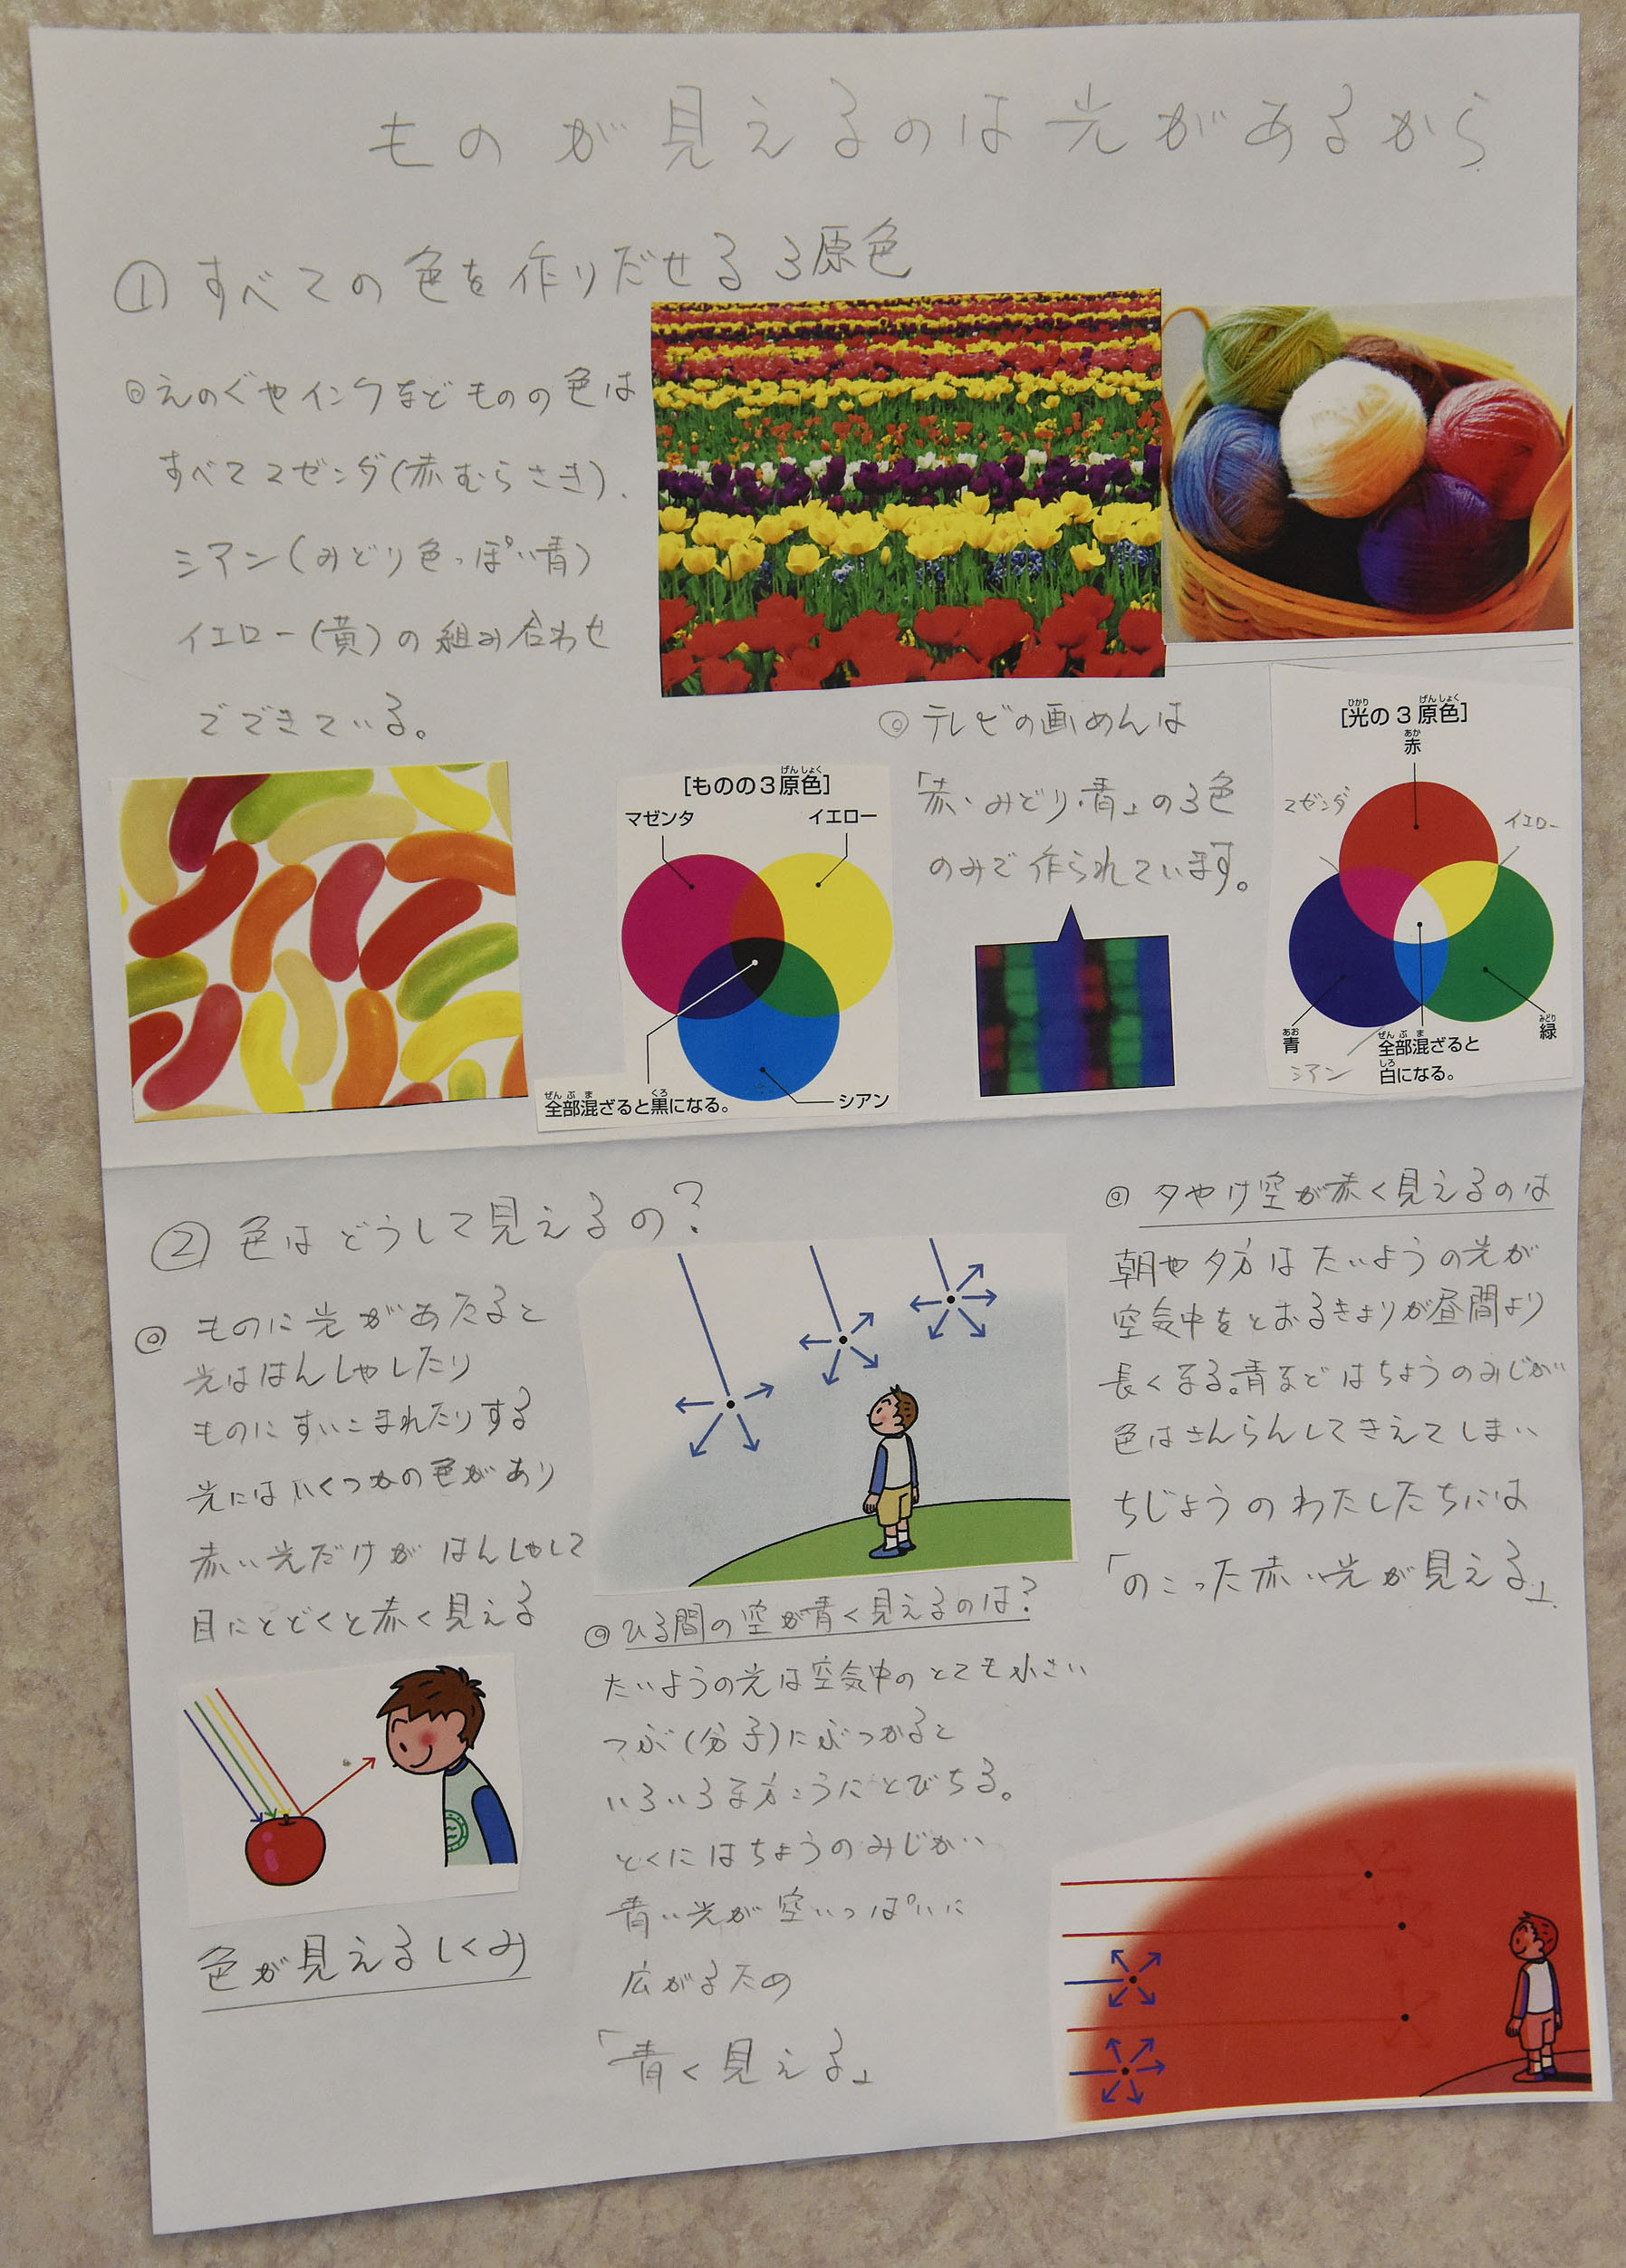 ものが見えるのは光があるから
①すべての色を作りだせる3原色
◎えのぐやインクなどものの色は
すべてマゼンダ(赤むらさき)、
シアン(みどり色っぽい青)
イエロー(黄)の組み合わせ
でできている。
[ものの3原色]
げんしょく
マゼンタ
イエロー
シアン
全部混ざると黒になる。
ぜんぶま
くろ
◎テレビの画めんは
「赤・みどり・青」の3色
のみで作られています。
[光の3原色]
ひかり
げんしょく
赤
あか
マゼンダ
イエロー
青
あお
シアン
緑
みどり
全部混ざると
ぜんぶま
白になる。
しろ
②色はどうして見えるの?
◎ものに光があたると
光ははんしゃしたり
ものにすいこまれたりする
光にはいくつかの色があり
赤い光だけがはんしゃして
目にとどくと赤く見える
色が見えるしくみ
◎ひる間の空が青く見えるのは?
たいようの光は空気中のとても小さい
つぶ(分子)にぶつかると
いろいろな方こうにとびちる。
とくにはちょうのみじかい
青い光が空いっぱいに
広がるため
「青く見える」
◎夕やけ空が赤く見えるのは
朝や夕方はたいようの光が
空気中をとおるきょりが昼間より
長くなる。青などはちょうのみじかい
色はさんらんしてきえてしまい
ちじょうのわたしたちには
「のこった赤い光が見える」